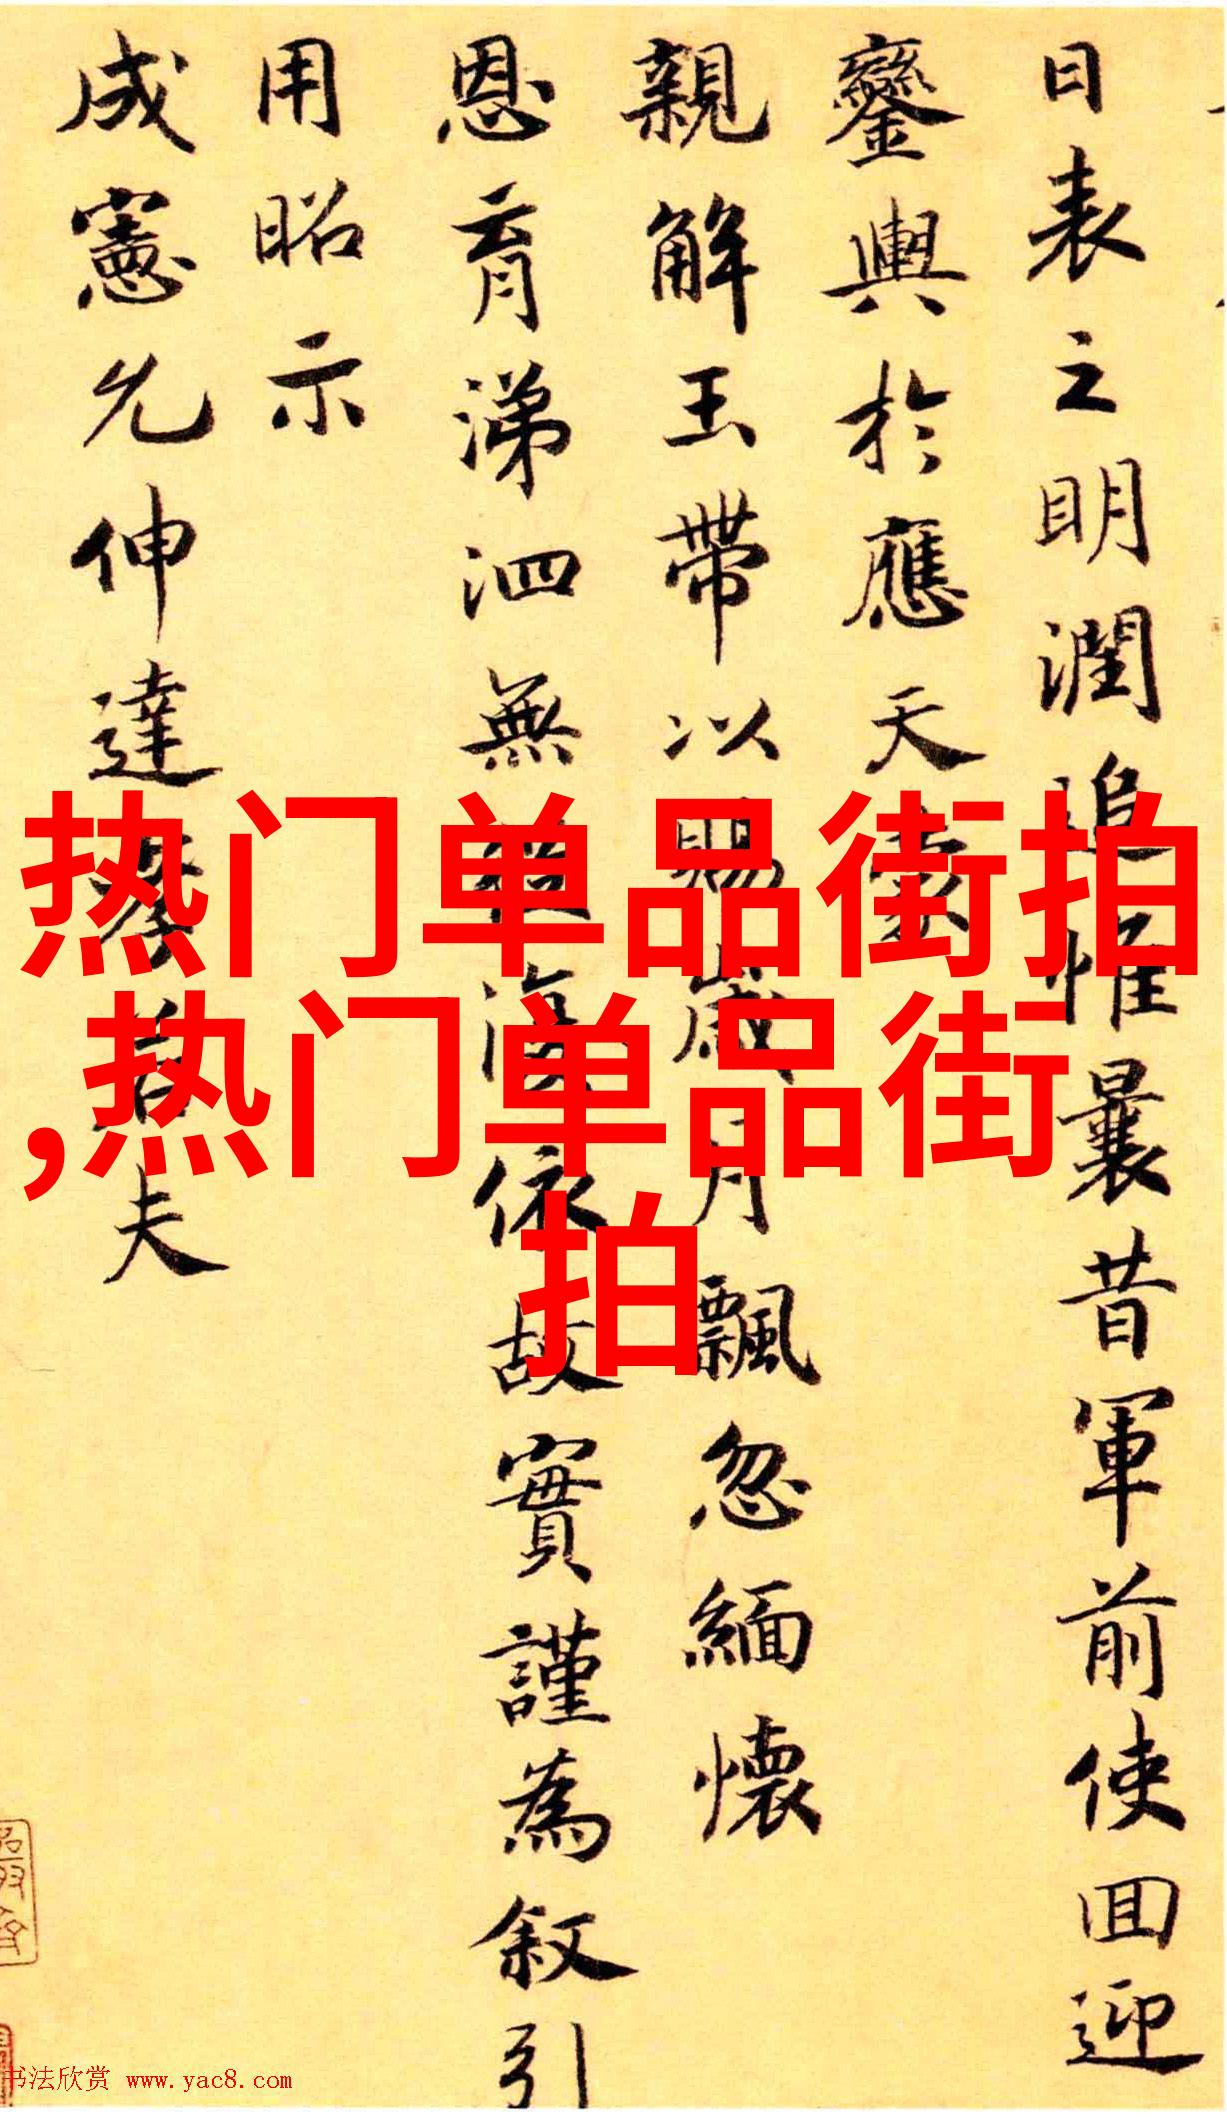 日表之明潤追惟曩昔軍前使回迎
鑾輿於應天
親解玉帶以賜歲月飄忽緬懷
恩育涕泗無從深依故實謹為叙引
用昭示
成憲允伸達孝若夫
热门单品街拍
,热门单品街
拍
书法欣赏 www.yac8.com